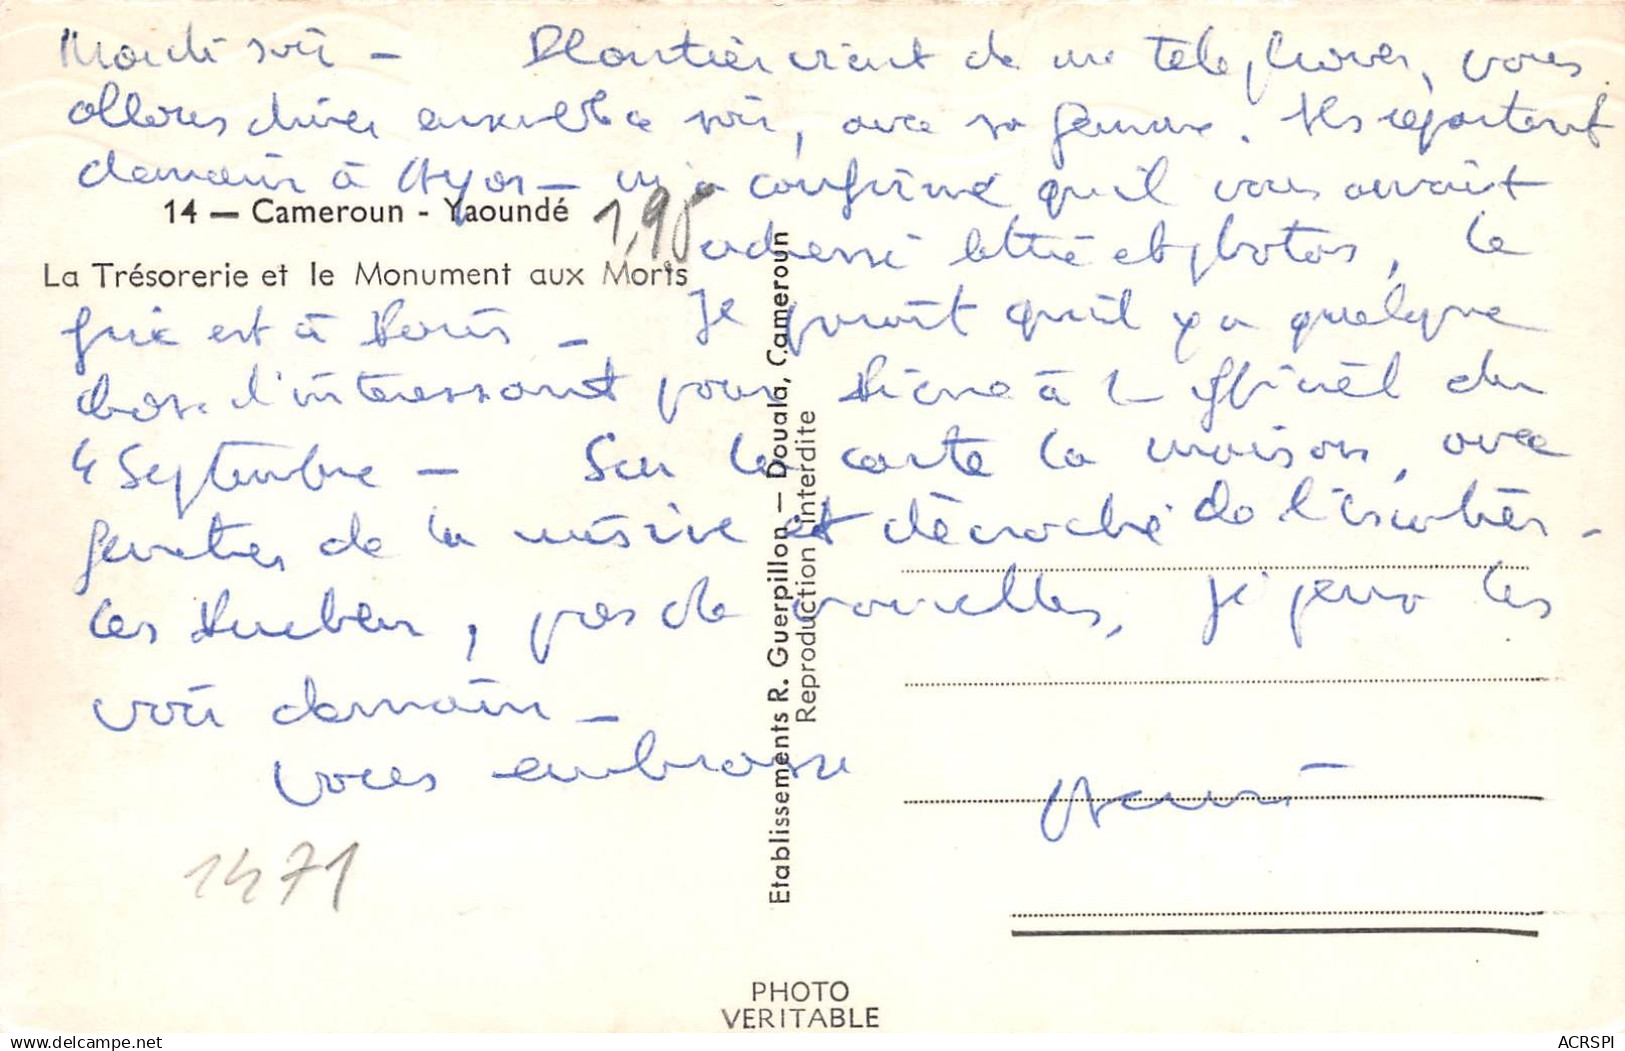 Mardi soir – Plantier vient de me téléphoner, vous
allons dîner ensemble ce soir, avec sa femme. Ils repartent
demain à Ayos – m'a confirmé qu'il vous avait
14 — Cameroun - Yaoundé
1,90
adressé lettre et photos, le
La Trésorerie et le Monument aux Morts
fric est à Paris – Je parait qu'il y a quelque
chose d'intéressant pour Pierre à l'officiel du
4 Septembre – Sur la carte la maison, avec
fenêtres de la et décroché de l'escalier –
Les , pas de nouvelles, Je peux les
voir demain –
vous embrasse
1471
Etablissements R. Guerpillon — Douala, Cameroun
Reproduction interdite
PHOTO
VERITABLE
ACRSPI